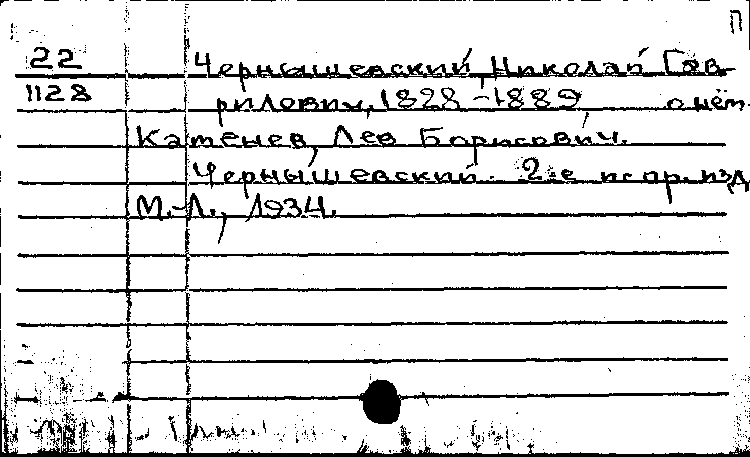 П
22 Чернышевский, Николай Гав-
1128 рилович, 1828-1889, о нём.
Катенев, Лев Борисович.
Чернышевский. 2-е испр. изд.
М.-Л., 1934.